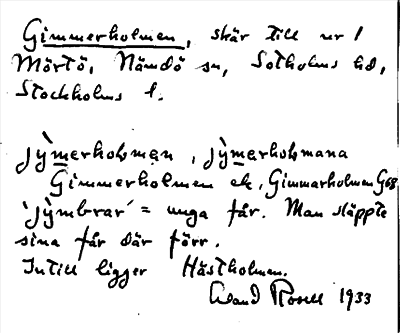 Gimmerholmen, skär till nr 1
Mörtö, Nämdö sn, Sotholms hd,
Stockholms l.
jỳmerholmen, jỳmerholmana
Gimmerholmen ek, Gimmarholmen G68
'jỳmbrar' = unga får. Man släppte
sina får där förr.
Intill ligger Hästholmen.
Rosell 1933